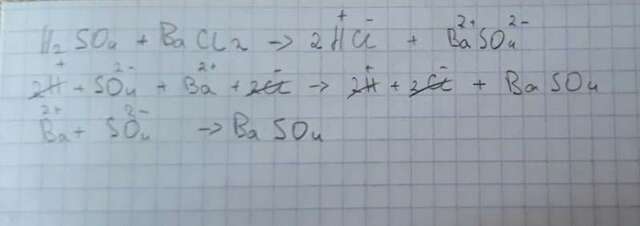 H₂SO₄ + BaCl₂ → 2H⁺Cl⁻ + Ba²⁺SO₄²⁻
2H⁺ + SO₄²⁻ + Ba²⁺ + 2Cl⁻ → 2H⁺ + 2Cl⁻ + BaSO₄
Ba²⁺ + SO₄²⁻ → BaSO₄